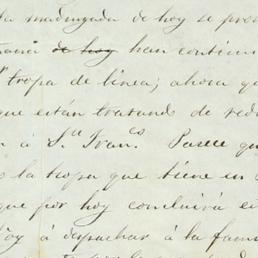 la madrugada de hoy se pro
de hoy han contin
tropa de línea; ahora q
que están tratando de red
n á S.n Fran.co Parece qu
la tropa que tiene en
que por hoy concluirá e
Voy á despachar á la fam